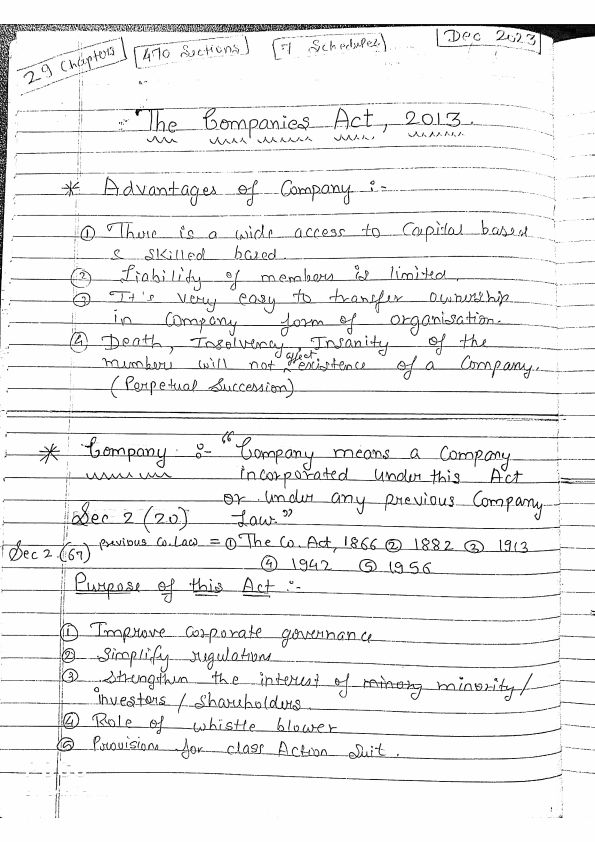 29 Chapters 470 Sections 7 Schedules Dec 2023
The Companies Act, 2013.
* Advantages of Company :-
① There is a wide access to Capital based
& skilled based.
② Liability of members is limited.
③ It's very easy to transfer ownership
in Company form of organisation.
④ Death, Insolvency, Insanity of the
members will not affect existence of a Company.
(Perpetual Succession)
* Company :- "Company means a Company
incorporated under this Act
or under any previous Company
Sec 2 (20) Law."
Sec 2 (67) previous Co. Law = ① The Co. Act, 1866 ② 1882 ③ 1913
④ 1942 ⑤ 1956
Purpose of this Act :-
① Improve corporate governance
② Simplify regulations
③ Strengthen the interest of minority/
investors / shareholders
④ Role of whistle blower
⑤ Provision for class Action Suit.